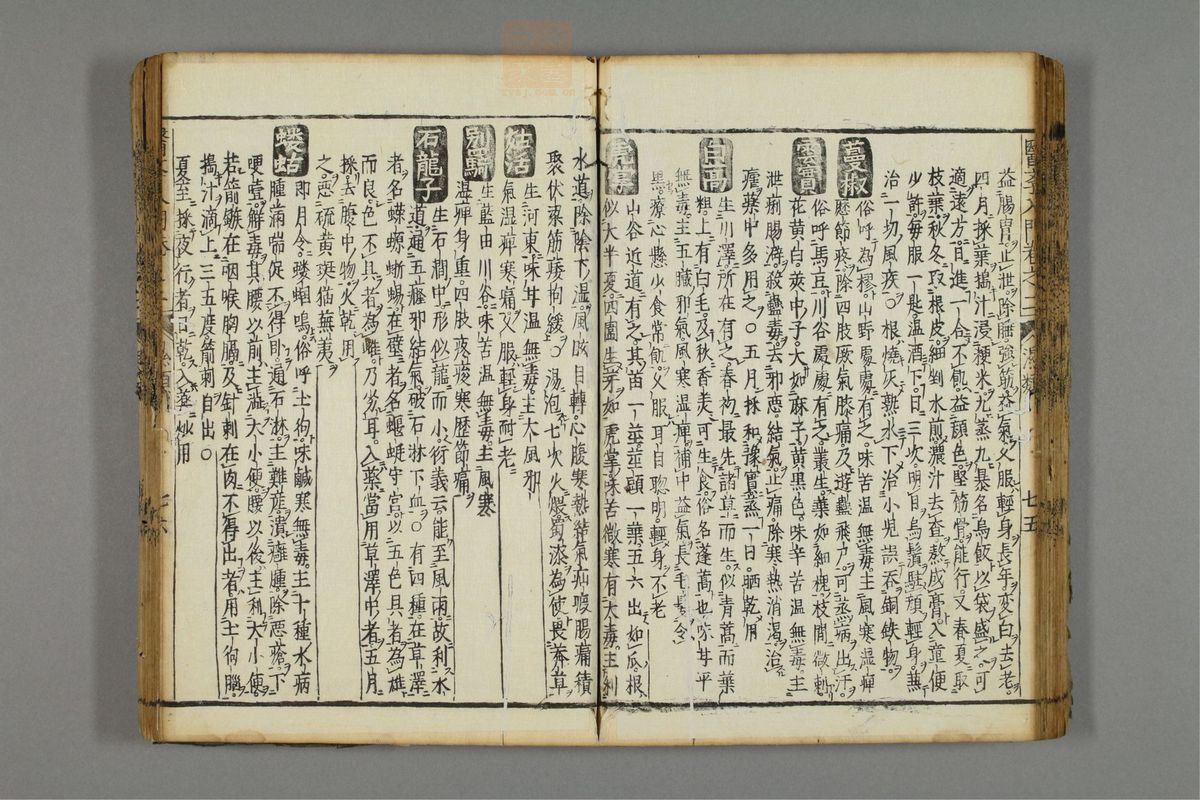 益腸胃止泄除睡強筋益氣久服輕身長年変白去老
四月採葉搗汁浸粳米九蒸九暴名烏飯以袋盛之可
適遠方日進一合不飢益顔色堅筋骨能行又春夏取
枝葉秋冬取根皮細剉水煎濃汁去查熬成膏入童便
少許每服一匙温酒下日三次明目烏鬚駐顔輕身無
治一切風疾〇根燒灰熟水下治小児誤吞銅鉄物
蔓椒
俗呼為樛山野處處有之味苦温無毒主風寒湿痺
歷節疼除四肢厥氣膝痛乃遊蠱飛尸可蒸病出汗
雲實
俗呼馬豆川谷處處有之叢生葉如細槐枝間微刺
花黃白莢中子大如麻子黃黒色味辛苦温無毒主
泄痢腸澼殺蠱毒去邪悪結氣止痛除寒熱消渴治
瘧藥中多用之〇五月採和漿實蒸一日晒乾用
白蒿
生川澤所在有之春初最先諸草而生似青蒿而葉
粗上有白毛及秋香美可生食俗名蓬蒿也味甘平
無毒主五臟邪氣風寒温痺補中益氣長毛髮令
黒療心懸少食常飢久服耳目聰明輕身不老
山谷近道有之其苗一莖莖頭一葉五六出如瓜根
似大半夏四圍生牙如虎掌味苦微寒有大毒主利
水道除陰下湿風眩目轉心腹寒熱結氣疝瘕腸痛積
聚伏梁筋痿拘緩〇湯泡七次火煨蜀漆為使畏莽草
姑活
生河東味甘温無毒主大風邪
氣湿痺寒痛久服輕身耐老
別羇
生藍田川谷味苦温無毒主風寒
湿痺身重四肢疼痠寒歷節痛
石龍子
生石澗中形似龍而小行義云能至風雨故利水
道通五癃邪結氣破石淋下血〇有四種在草澤
者名蠑螈蜥蜴在壁者名蝘蜓守宮以五色具者為雄
而良色不具者為雌乃劣耳入藥當用草澤中者五月
採去腹中物火乾用
之悪硫黃斑猫蕪荑
螻蛄
即月令螻蟈鳴俗呼土狗味鹹寒無毒主十種水病
腫滿喘促不得臥通石淋主難産潰癰腫除悪瘡下
哽噎解毒其腰以前主澁大小便腰以後主利大小便
若箭鏃在咽喉胸膈及針刺在肉不得出者用土狗腦
搗汁滴上三五度箭刺自出〇
夏至採夜行者日乾入藥炒用
七五
七六